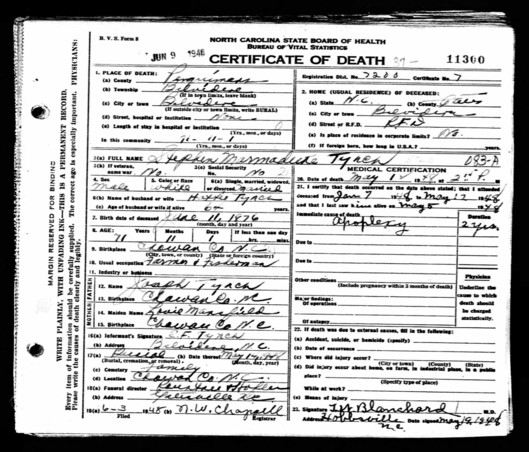 R. V. S. Form 8
NORTH CAROLINA STATE BOARD OF HEALTH
BUREAU OF VITAL STATISTICS
JUN 9 1948
CERTIFICATE OF DEATH
11300
MARGIN RESERVED FOR BINDING
WRITE PLAINLY, WITH UNFADING INK—THIS IS A PERMANENT RECORD.
Every item of information should be carefully supplied. The correct age is especially important. PHYSICIANS:
Write the causes of death clearly and legibly.
1. PLACE OF DEATH:
(a) County Perquimans
(b) Township Belvidere
(If in town limits, leave blank)
(c) City or town Belvidere
(If outside city or town limits, write RURAL)
(d) Street, hospital or institution None
(e) Length of stay in hospital or institution
(Yrs., mos., or days)
In this community
(Yrs., mos., or days)
Registration Dist. No. 7200 Certificate No. 7
2. HOME (USUAL RESIDENCE) OF DECEASED:
(a) State N.C. (b) County Gates
(c) City or town Belvidere
(d) Street or R.F.D. RFD
(e) Is place of residence in corporate limits? No.
(f) If foreign born, how long in U.S.A.?
3(a) FULL NAME Stephen Mermaduke Tynch
083-A
3(b) If veteran, name war No. 3(c) Social Security No.
4. Sex Male 5. Color or Race White 6(a) Single, married, widowed, or divorced Married
6(b) Name of husband or wife Tynch
6(c) Age of husband or wife if alive
7. Birth date of deceased June 11, 1876
(month, day and year)
8. AGE: Years 71 Months 11 Days If less than one day hrs. min.
9. Birthplace Chowan Co N.C.
(City, town, or county) (State or foreign country)
10. Usual occupation Farmer & Fisherman
11. Industry or business
FATHER
12. Name Tynch
13. Birthplace Chowan Co. NC
MOTHER
14. Maiden Name Mansfield
15. Birthplace Chowan Co N.C.
16(a) Informant's Signature Tynch
(b) Address Belvidere, N.C.
17(a) Burial (b) Date thereof May 19, 48
(Burial, cremation, or removal) (Month, day, year)
(c) Cemetery Family
(d) Location Chowan Co. N.C.
18(a) Funeral director
(b) Address Gatesville NC
19(a) 6-3 1948 (b) N. W. Chappell
Filed Registrar
MEDICAL CERTIFICATION
20. Date of death May 18 1948 at 2 P.
21. I certify that death occurred on the date above stated; that I attended
deceased from Jan 7 1948 to May 17 1948
and last saw alive on May 1948
Immediate cause of death Apoplexy
Duration
2 yrs.
Due to
Due to
Other conditions
(Include pregnancy within 3 months of death)
Major findings:
Of operations
Of autopsy
Physician
Underline
the cause to
which death
should be
charged
statistically
22. If death was due to external causes, fill in the following:
(a) Accident, suicide, or homicide (specify)
(b) Date of occurrence
(c) Where did injury occur?
(City or town) (County) (State)
(d) Did injury occur in or about home, on farm, in industrial place, in public place?
While at work?
(Specify type of place)
(e) Means of injury
23. Signature Blanchard M.D.
Address Hobbsville N.C. Date signed May 19, 1948